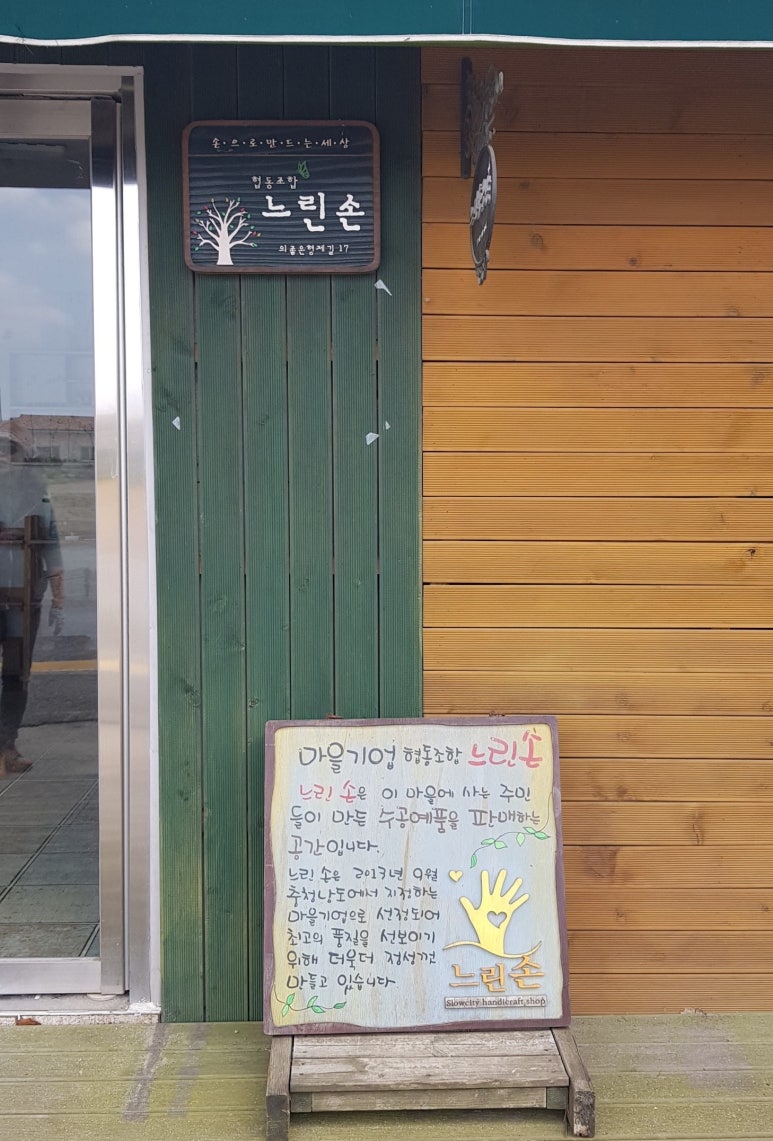 손·으·로·만·드·는·세·상
협동조합
느린손
의좋은형제길 17
마을기업 협동조합 느린손
느린 손은 이 마을에 사는 주민
들이 만든 수공예품을 판매하는
공간입니다.
느린 손은 2013년 9월
충청남도에서 지정하는
마을기업으로 선정되어
최고의 품질을 선보이기
위해 더욱더 정성껏
만들고 있습니다
느린손
Slowcity handicraft shop